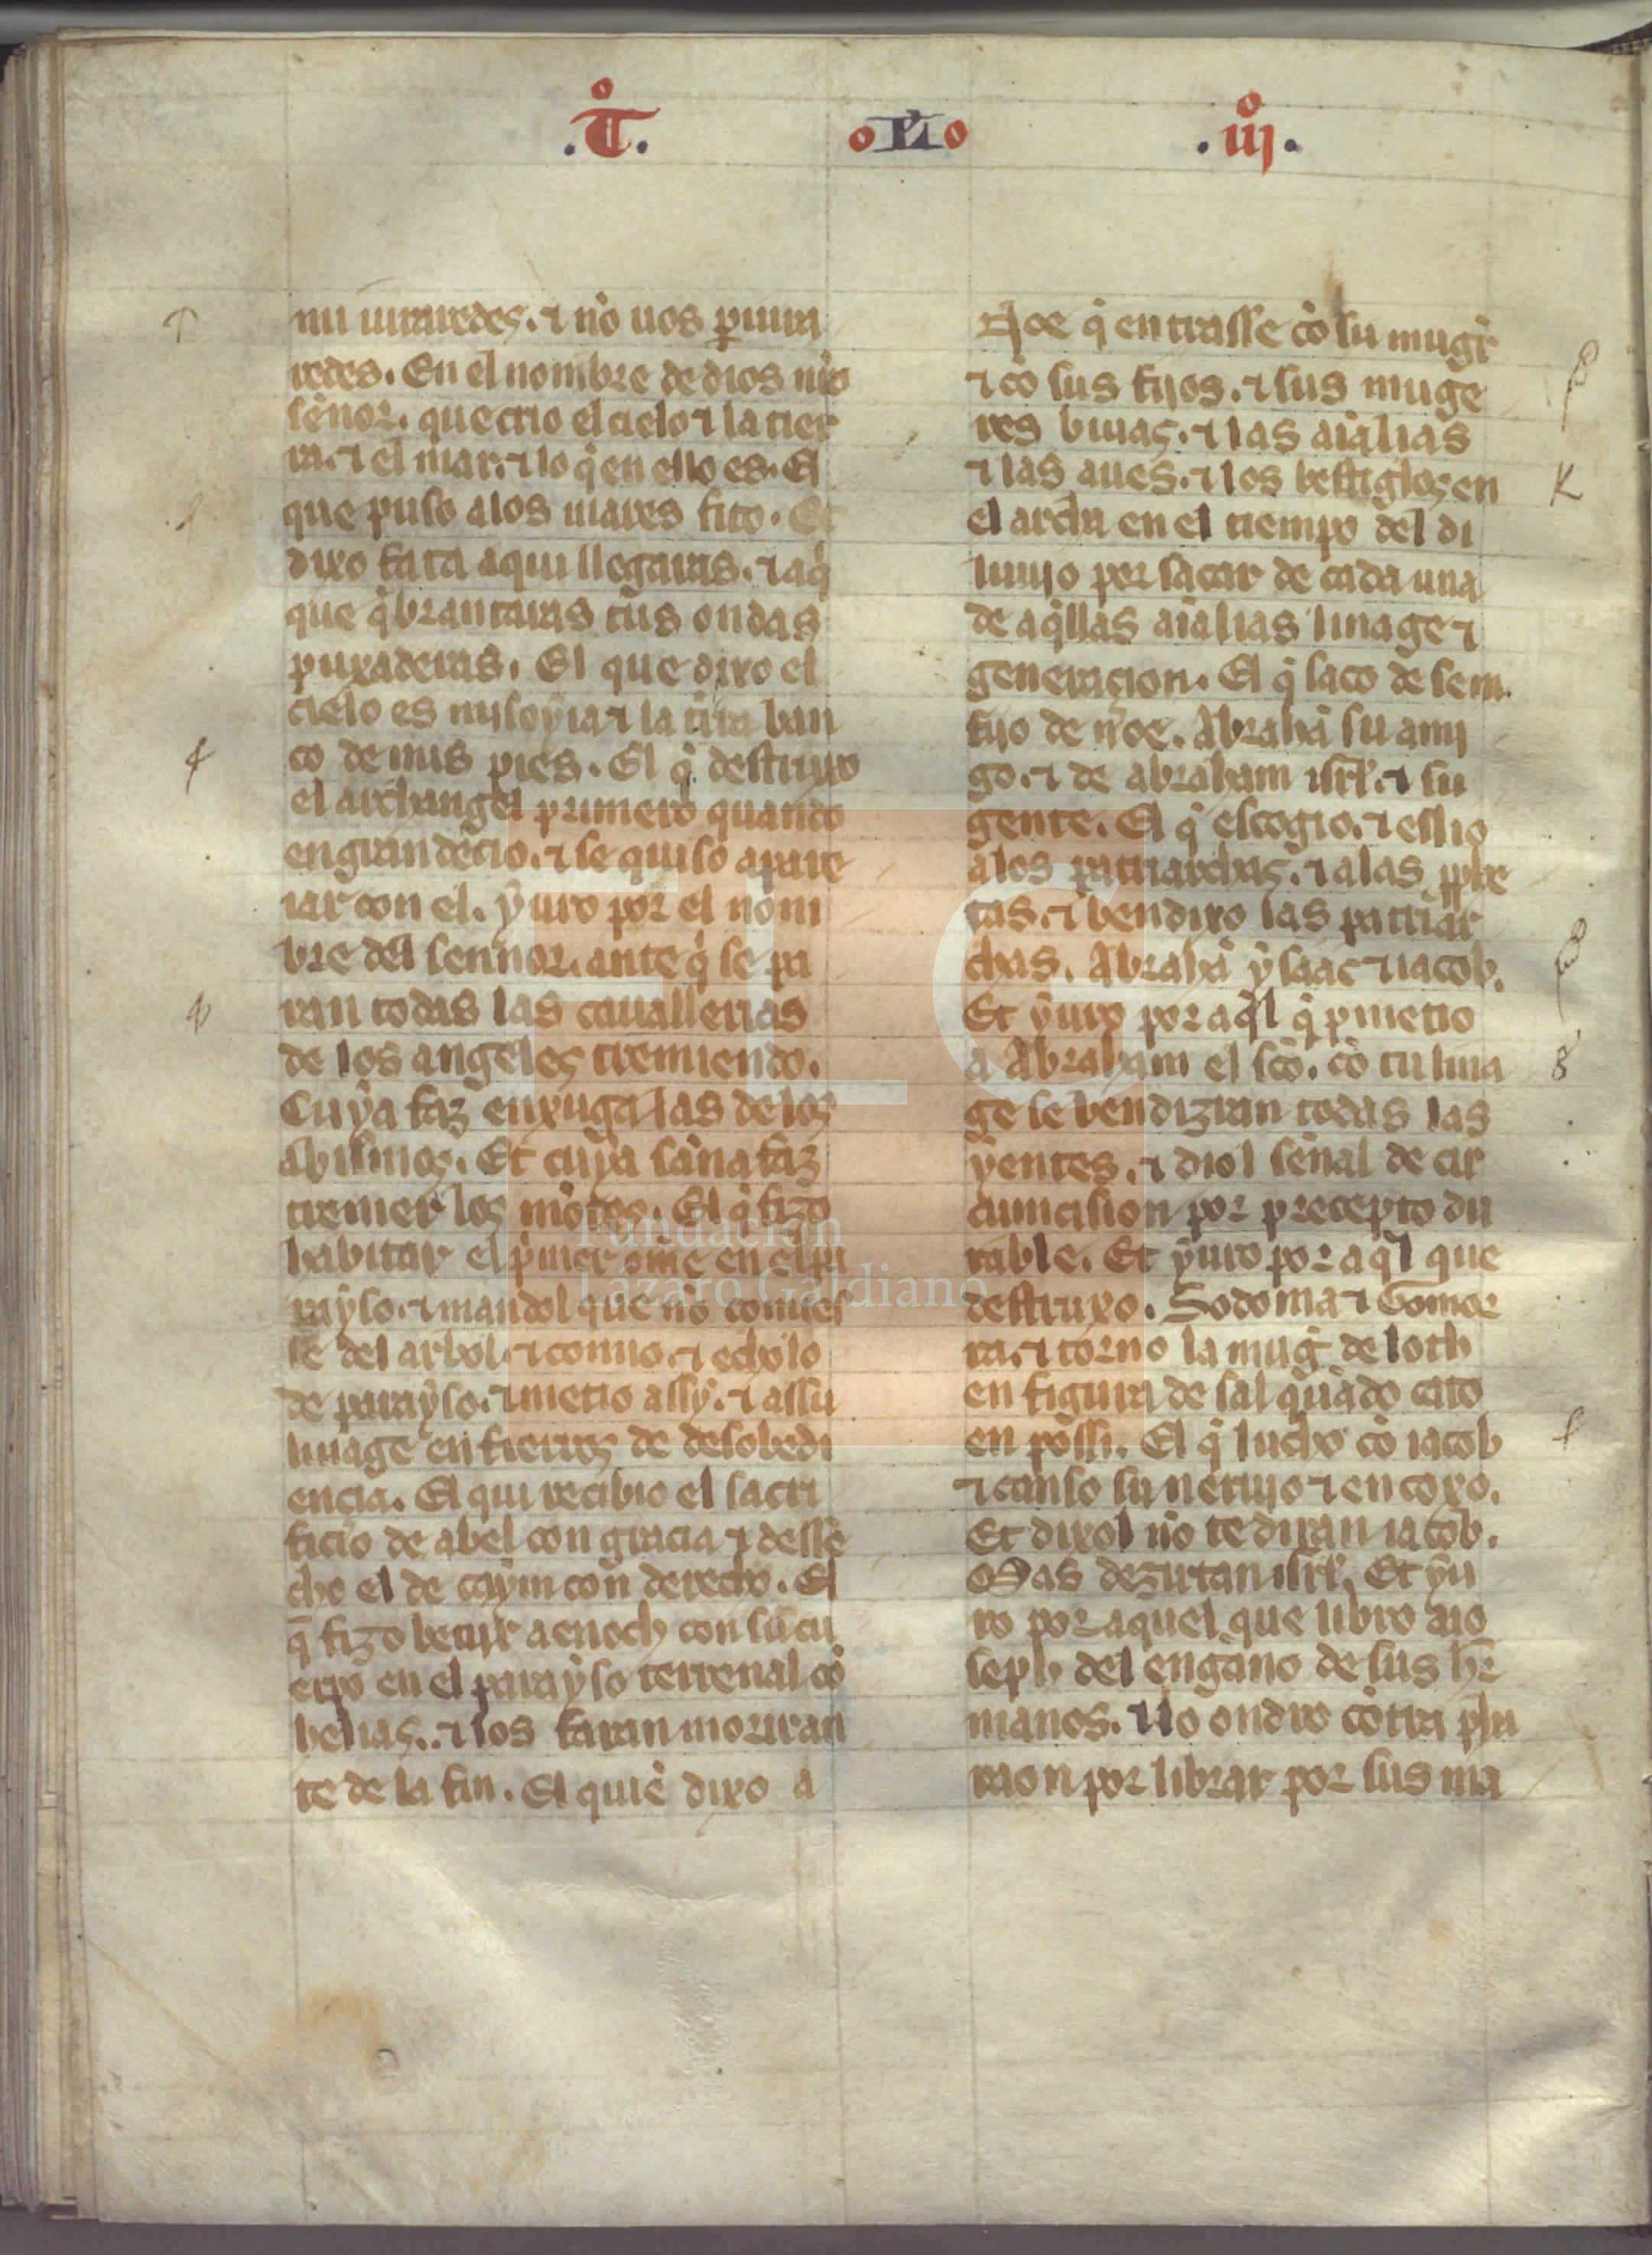 .T. L .iij.
mi iuraredes. ⁊ nõ uos ꝑiura
redes. En el nombre de dios nr̃o
señor. que crio el cielo ⁊ la tier
ra. ⁊ el mar. ⁊ lo q̃ en ello es. El
que puso alos mares fito. Et
dixo fata aqui llegaras. ⁊ aq̃
que q̃brantaras tus ondas
puxaderas. El que dixo el
cielo es mi ⁊ la tr̃ra ban
co de mis pies. El q̃ destruyo
el archangel primero quando
engrandecio. ⁊ se quiso apare
iar con el. yuro por el nom
bre del sennor. ante q̃ se pa
ran todas las cauallerias
de los angeles tremiendo.
Cuya faz enxuga las de los
abismos. Et cuya saña faz
tremer los mõtes. El q̃ fizo
habitar el p̃mer ome en el pa
rayso. ⁊ mandol que nõ comies
se del arbol. ⁊ comio. ⁊ echolo
de parayso. ⁊ metio assy. ⁊ assu
linage en fierros de desobedi
encia. El qui recibio el sacri
ficio de abel con gracia ⁊ desse
cho el de caym con derecho. El
q̃ fizo beuir a enoch con su cu
erpo en el parayso terrenal cõ
helias. ⁊ los faran morir an
te de la fin. El quiẽ dixo a
Noe q̃ entrasse cõ su mugr̃
⁊ cõ sus fijos. ⁊ sus muge
res biuas. ⁊ las aĩalias
⁊ las aues. ⁊ los bestiglos en
el archa en el tiempo del di
luuio por sacar de cada una
de aq̃llas aĩalias linage ⁊
generacion. El q̃ saco de sem.
fijo de noe. Abrahã su ami
go. ⁊ de abraham isrl̃. ⁊ su
gente. El q̃ escogio. ⁊ eslio
alos patriarchas. ⁊ alas ꝓphe
tas. ⁊ bendixo las patriar
chas. Abrahã ysaac ⁊ iacob.
Et yuro por aq̃l q̃ ꝓmetio
a Abraham el sc̃o. cõ tu lina
ge se bendizran todas las
yentes. ⁊ diol señal de cir
cumcision por precepto du
rable. Et yuro por aq̃l que
destruxo. Sodoma ⁊ Gomor
ra. ⁊ torno la mug̃ de loth
en figura de sal q̃uãdo cato
en põssi. El q̃ lucho cõ iacob
⁊ canso su neruyo ⁊ encoxo.
Et dixol nõ te diran iacob.
Mas dezirtan isrl̃. Et yu
ro por aquel que libro aio
seph del engano de sus her̃
manos. Ilo ondro cõtra pha
raon por librar por sus ma